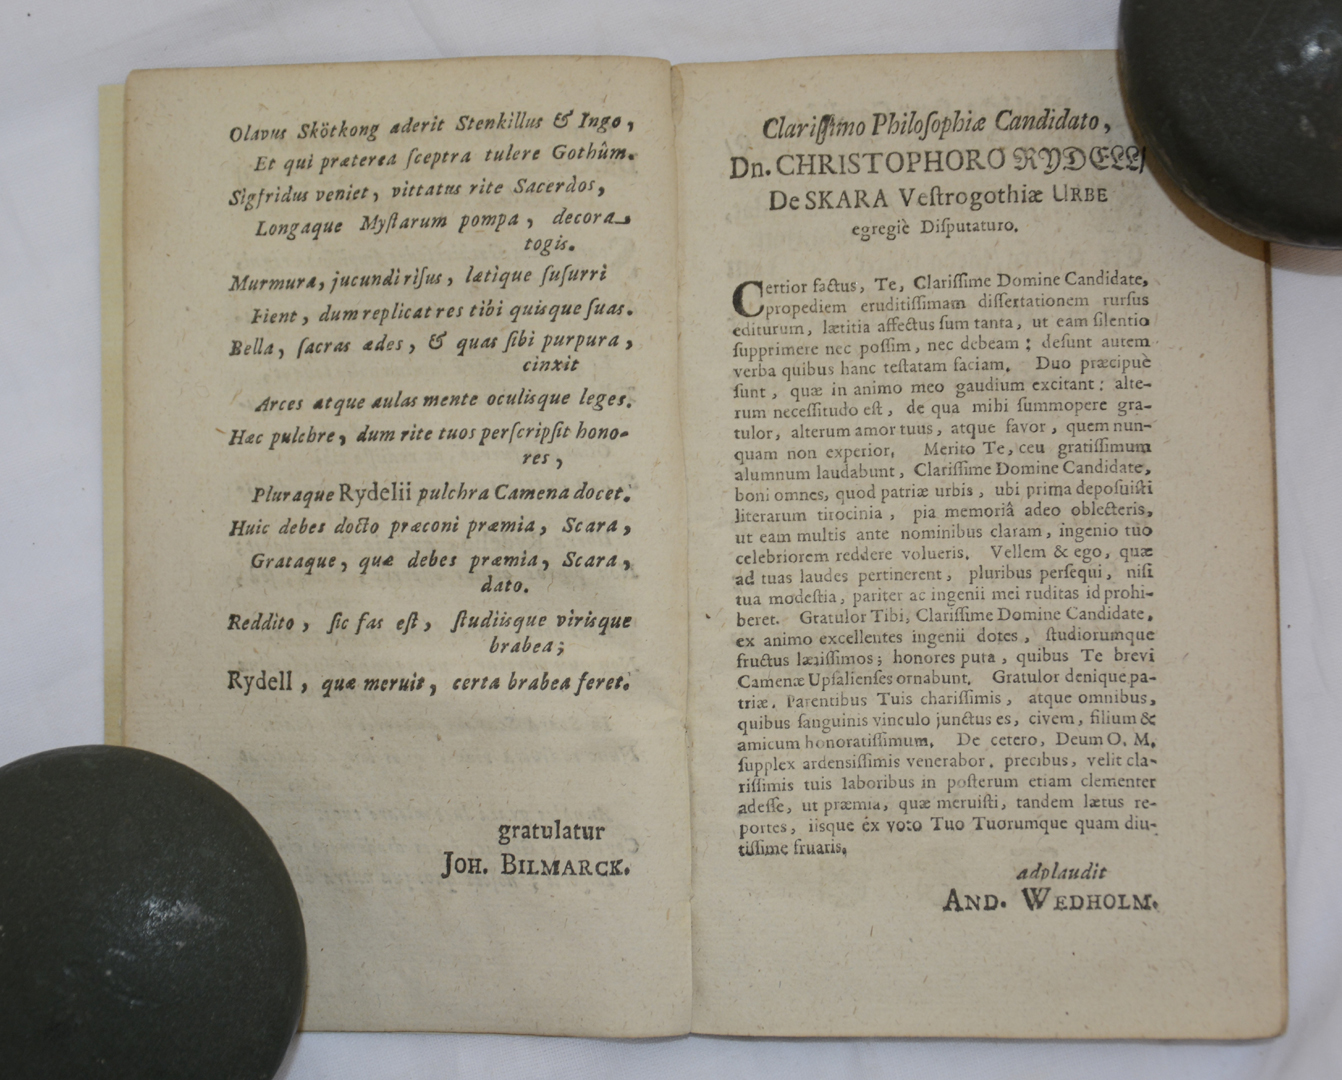 Olavus Skötkong aderit Stenkillus & Ingo,
Et qui præterea ſceptra tulere Gothûm.
Sigfridus veniet, vittatus rite Sacerdos,
Longaque Myſtarum pompa, decora
togis.
Murmura, jucundi riſus, lætique ſuſurri
Fient, dum replicat res tibi quisque ſuas.
Bella, ſacras ædes, & quas ſibi purpura,
cinxit
Arces atque aulas mente oculisque leges.
Hæc pulchre, dum rite tuos perſcripſit hono-
res,
Pluraque Rydelii pulchra Camena docet.
Huic debes docto præconi præmia, Scara,
Grataque, quæ debes præmia, Scara,
dato.
Reddito, ſic fas eſt, ſtudiisque virisque
brabea;
Rydell, quæ meruit, certa brabea feret.
gratulatur
JOH. BILMARCK.
Clariſſimo Philoſophiæ Candidato,
Dn. CHRISTOPHORO RYDELL/
De SKARA Veſtrogothiæ URBE
egregiè Diſputaturo.
Certior factus, Te, Clariſſime Domine Candidate,
propediem eruditiſſimam diſſertationem rurſus
editurum, lætitia affectus ſum tanta, ut eam ſilentio
ſupprimere nec poſſim, nec debeam; deſunt autem
verba quibus hanc teſtatam faciam. Duo præcipuè
ſunt, quæ in animo meo gaudium excitant: alte-
rum neceſſitudo eſt, de qua mihi ſummopere gra-
tulor, alterum amor tuus, atque favor, quem nun-
quam non experior. Merito Te, ceu gratiſſimum
alumnum laudabunt, Clariſſime Domine Candidate,
boni omnes, quod patriæ urbis, ubi prima depoſuiſti
literarum tirocinia, pia memoriâ adeo oblecteris,
ut eam multis ante nominibus claram, ingenio tuo
celebriorem reddere volueris. Vellem & ego, quæ
ad tuas laudes pertinerent, pluribus perſequi, niſi
tua modeſtia, pariter ac ingenii mei ruditas id prohi-
beret. Gratulor Tibi, Clariſſime Domine Candidate,
ex animo excellentes ingenii dotes, ſtudiorumque
fructus lætiſſimos; honores puta, quibus Te brevi
Camenæ Upſalienſes ornabunt. Gratulor denique pa-
triæ, Parentibus Tuis chariſſimis, atque omnibus,
quibus ſanguinis vinculo junctus es, civem, filium &
amicum honoratiſſimum. De cetero, Deum O. M.
ſupplex ardensiſſimis venerabor, precibus, velit cla-
riſſimis tuis laboribus in poſterum etiam clementer
adeſſe, ut præmia, quæ meruiſti, tandem lætus re-
portes, iisque ex voto Tuo Tuorumque quam diu-
tiſſime fruaris.
adplaudit
AND. WEDHOLM.